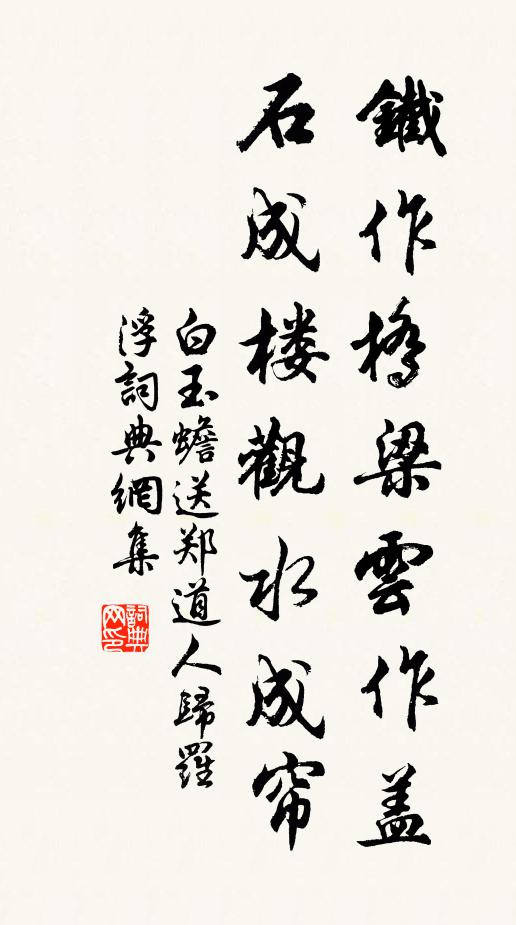 鐵作橋梁雲作盖
石成楼觀水成帘
白玉蟾送郑道人歸羅
浮詞典網集
詞典网印